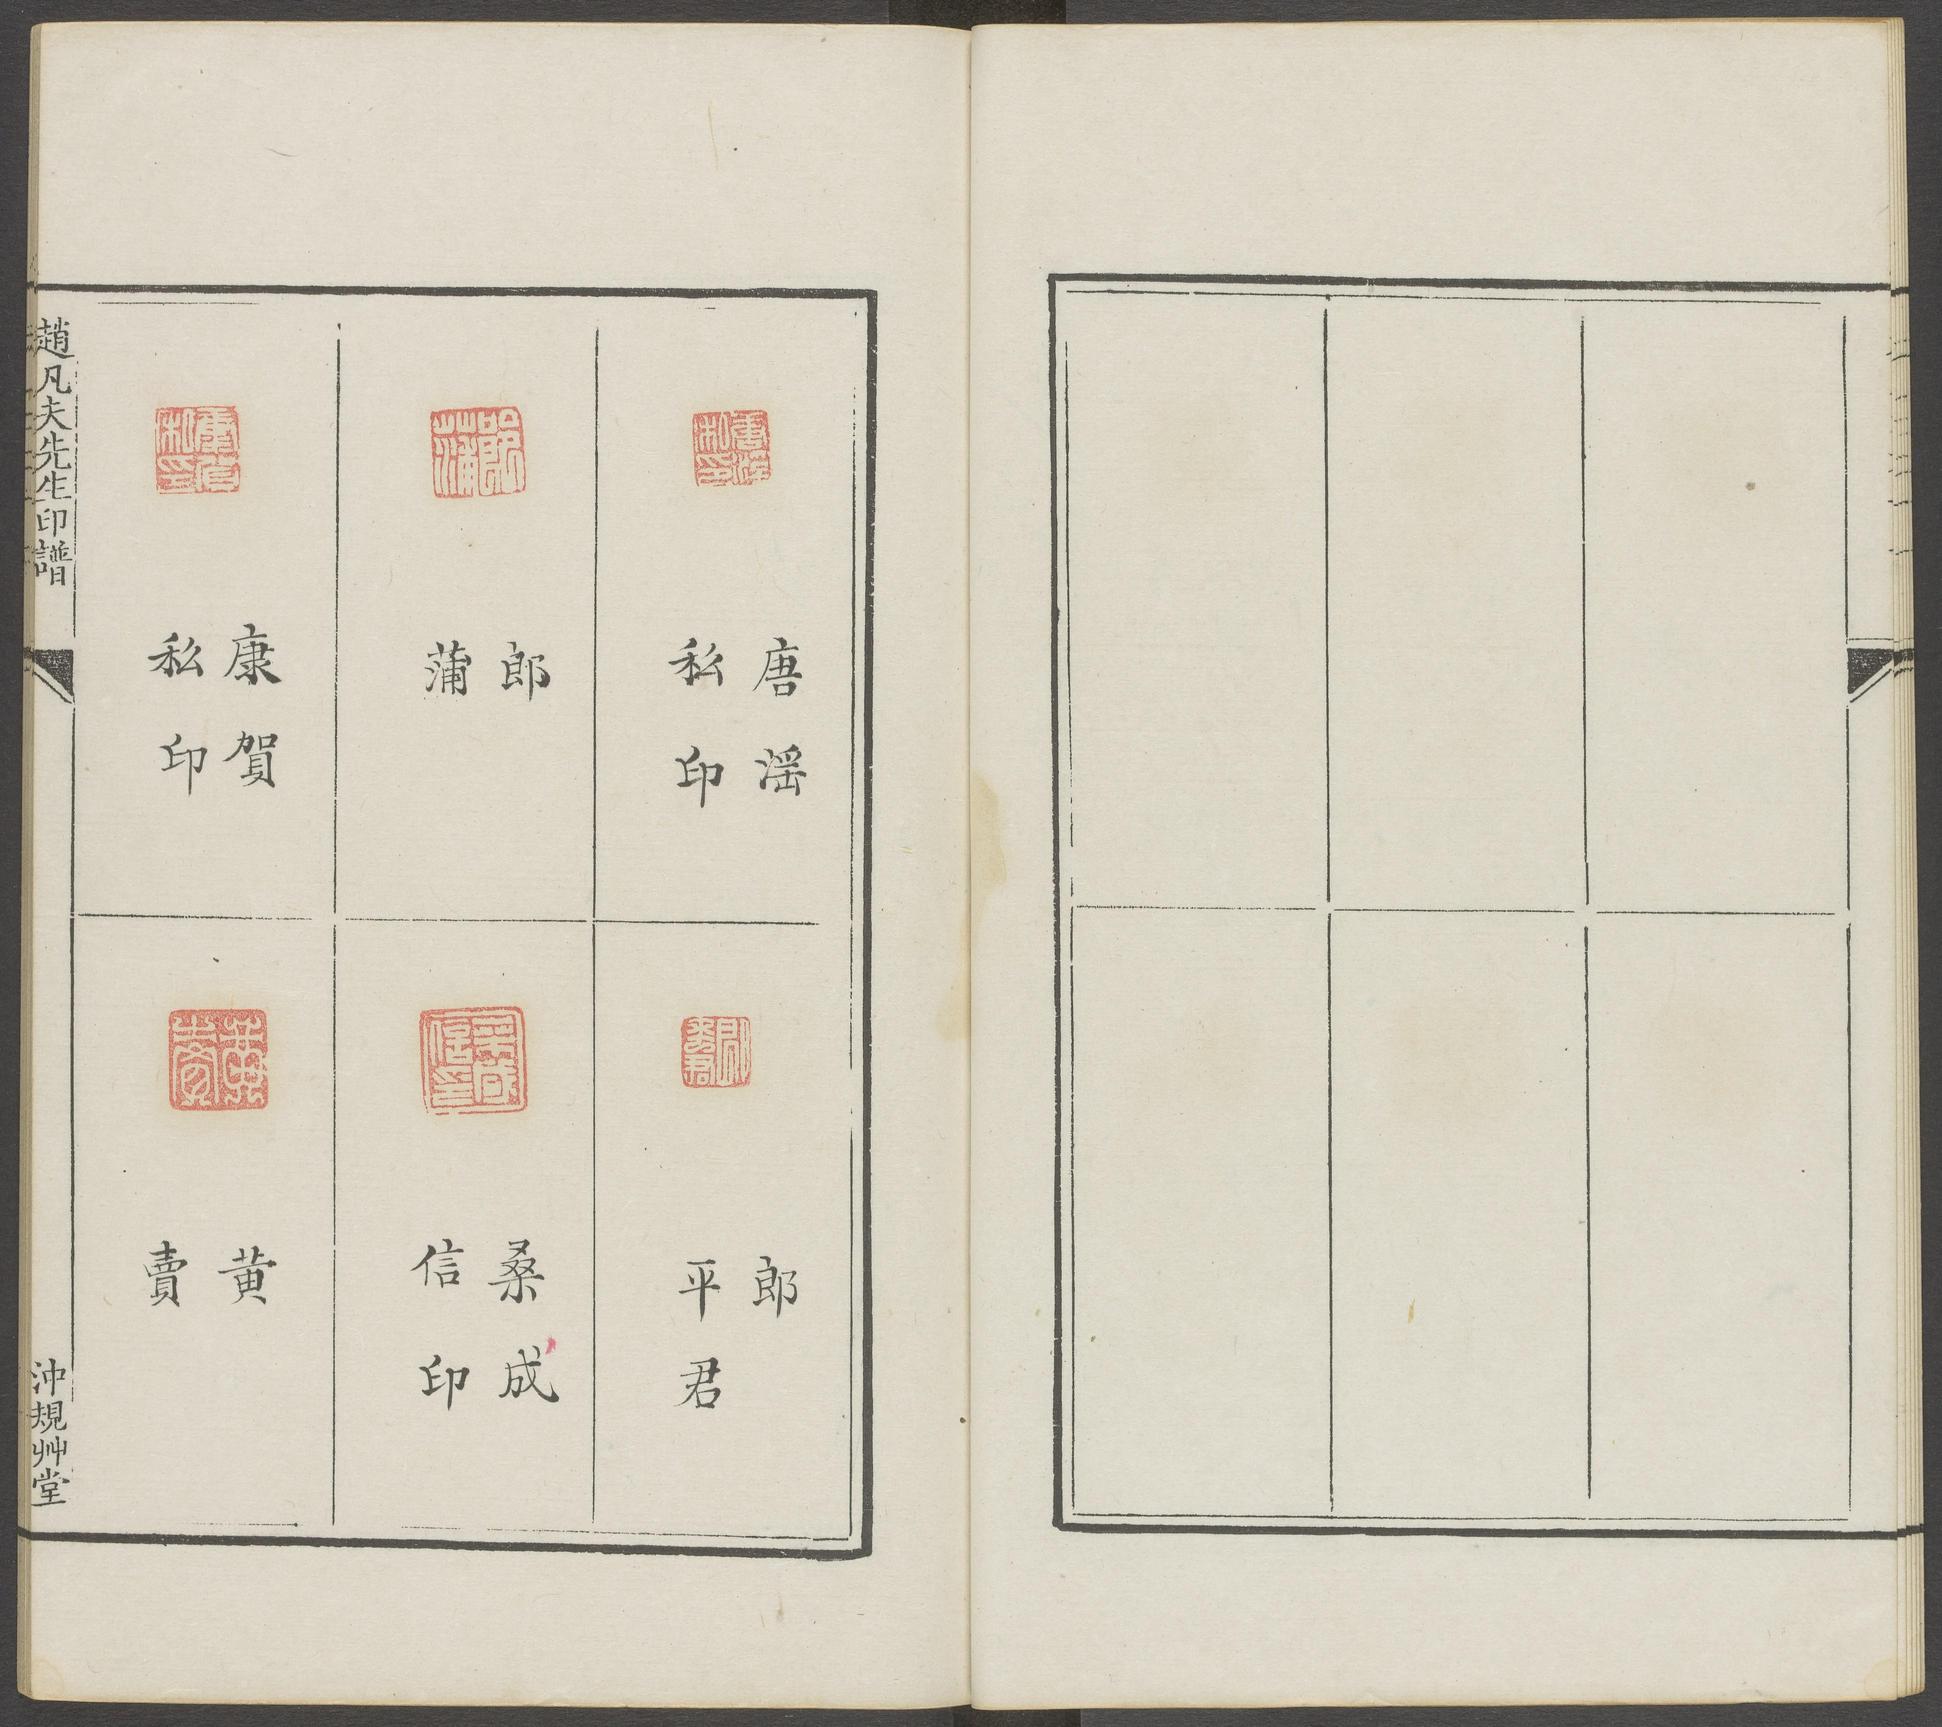 唐滛
私印
郎
平君
郎
蒲
桑成
信印
康賀
私印
黄
賣
趙凡夫先生印譜
沖規艸堂